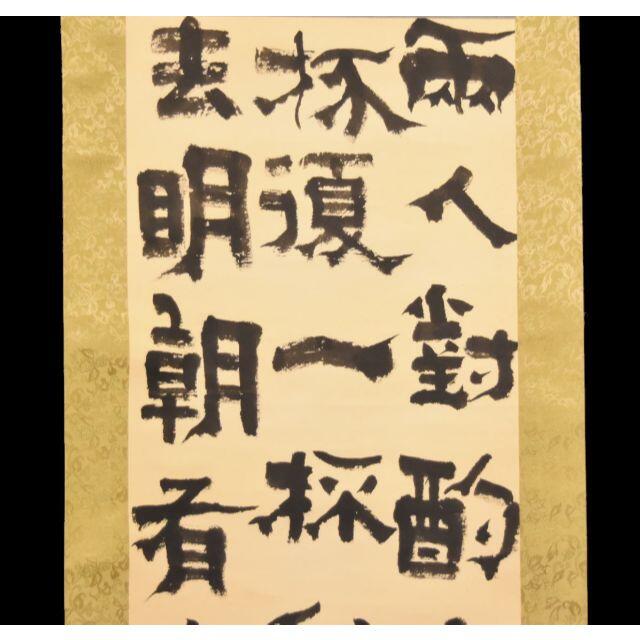 兩人對酌
杯復一杯
去明朝有